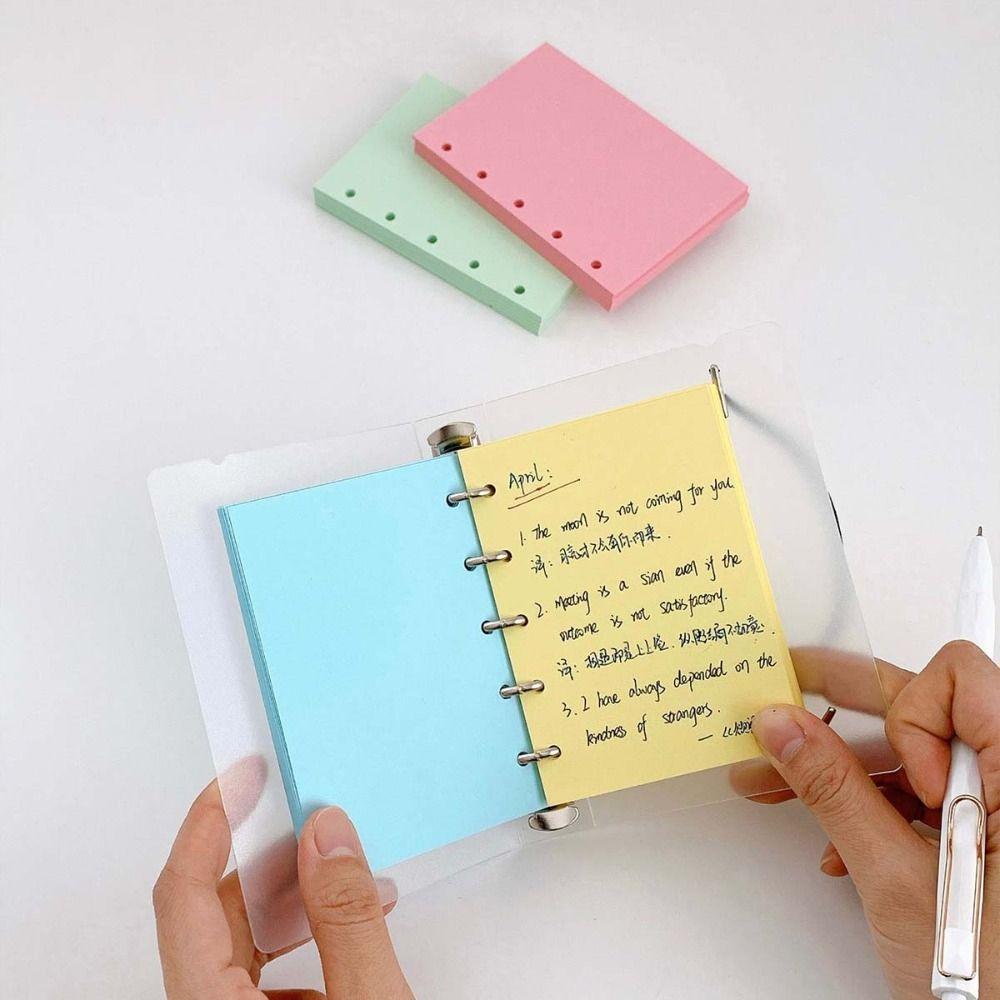 April:
1. The moon is not coming for you
译: 月亮才不会奔你而来.
2. Meeting is a sian even if the
outcome is not satisfactory.
译: 相遇即是上上签, 纵使结局不如意.
3. I have always depended on the
kindness of strangers.
—《